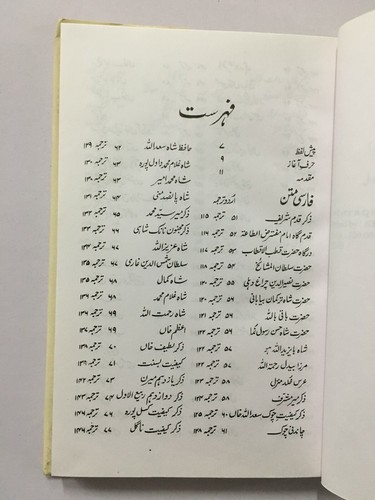 فہرست
پیش لفظ ۷
حرف آغاز ۹
مقدمہ ۱۱
فارسی متن اُردو ترجمہ
ذکر قدم شریف ۵۱ ترجمہ ۱۱۵
قدم گاہ امام مفترض الطاعتہ ۵۲ ترجمہ ۱۱۶
درگاہ حضرت قطب الاقطاب ۵۳ ترجمہ ۱۱۷
حضرت سلطان المشائخ ترجمہ ۱۱۸
حضرت نصیرالدین چراغ دہلی ترجمہ
حضرت شاہ ترکمان بیابانی ترجمہ ۱۲۰
حضرت باقی باللہ ترجمہ
حضرت شاہ حسن رسول نما ترجمہ
شاہ بایزید اللہ ہو ۵۷ ترجمہ ۱۲۲
مرزا بیدل رحمتہ اللہ ۵۷ ترجمہ ۱۲۲
عرس خلد منزل ۵۸ ترجمہ
ذکر میر مشرف ۵۸ ترجمہ ۱۲۳
ذکر کیفیت چوک سعد اللہ خاں ۶۰ ترجمہ ۱۲۵
چاندنی چوک ۶۱ ترجمہ
حافظ شاہ سعد اللہ ۶۲ ترجمہ ۱۲۹
شاہ غلام محمد داول پورہ ۶۳ ترجمہ ۱۳۰
شاہ محمد امیر ۶۳ ترجمہ ۱۳۰
شاہ پانصد منی ۶۴ ترجمہ ۱۳۱
ذکر میر سید محمد ۶۵ ترجمہ
ذکر مجنون نانک شاہی ۶۶ ترجمہ
شاہ عزیز اللہ ۶۷ ترجمہ
سلطان شمس الدین غازی ۶۷ ترجمہ ۱۳۵
شاہ کمال ۶۸ ترجمہ
شاہ غلام محمد ۶۸ ترجمہ
شاہ رحمت اللہ ۶۹ ترجمہ ۱۳۶
اعظم خاں ۶۹ ترجمہ ۱۳۷
ذکر لطیف خاں ۷۰ ترجمہ
کیفیت بسنت ۷۱ ترجمہ
ذکر یازدہم میرن ۷۳ ترجمہ
ذکر دوازدہم ربیع الاول ۷۴ ترجمہ ۱۴۳
ذکر کیفیت کسل پورہ ۷۶ ترجمہ
ذکر کیفیت ناگل ۷۷ ترجمہ